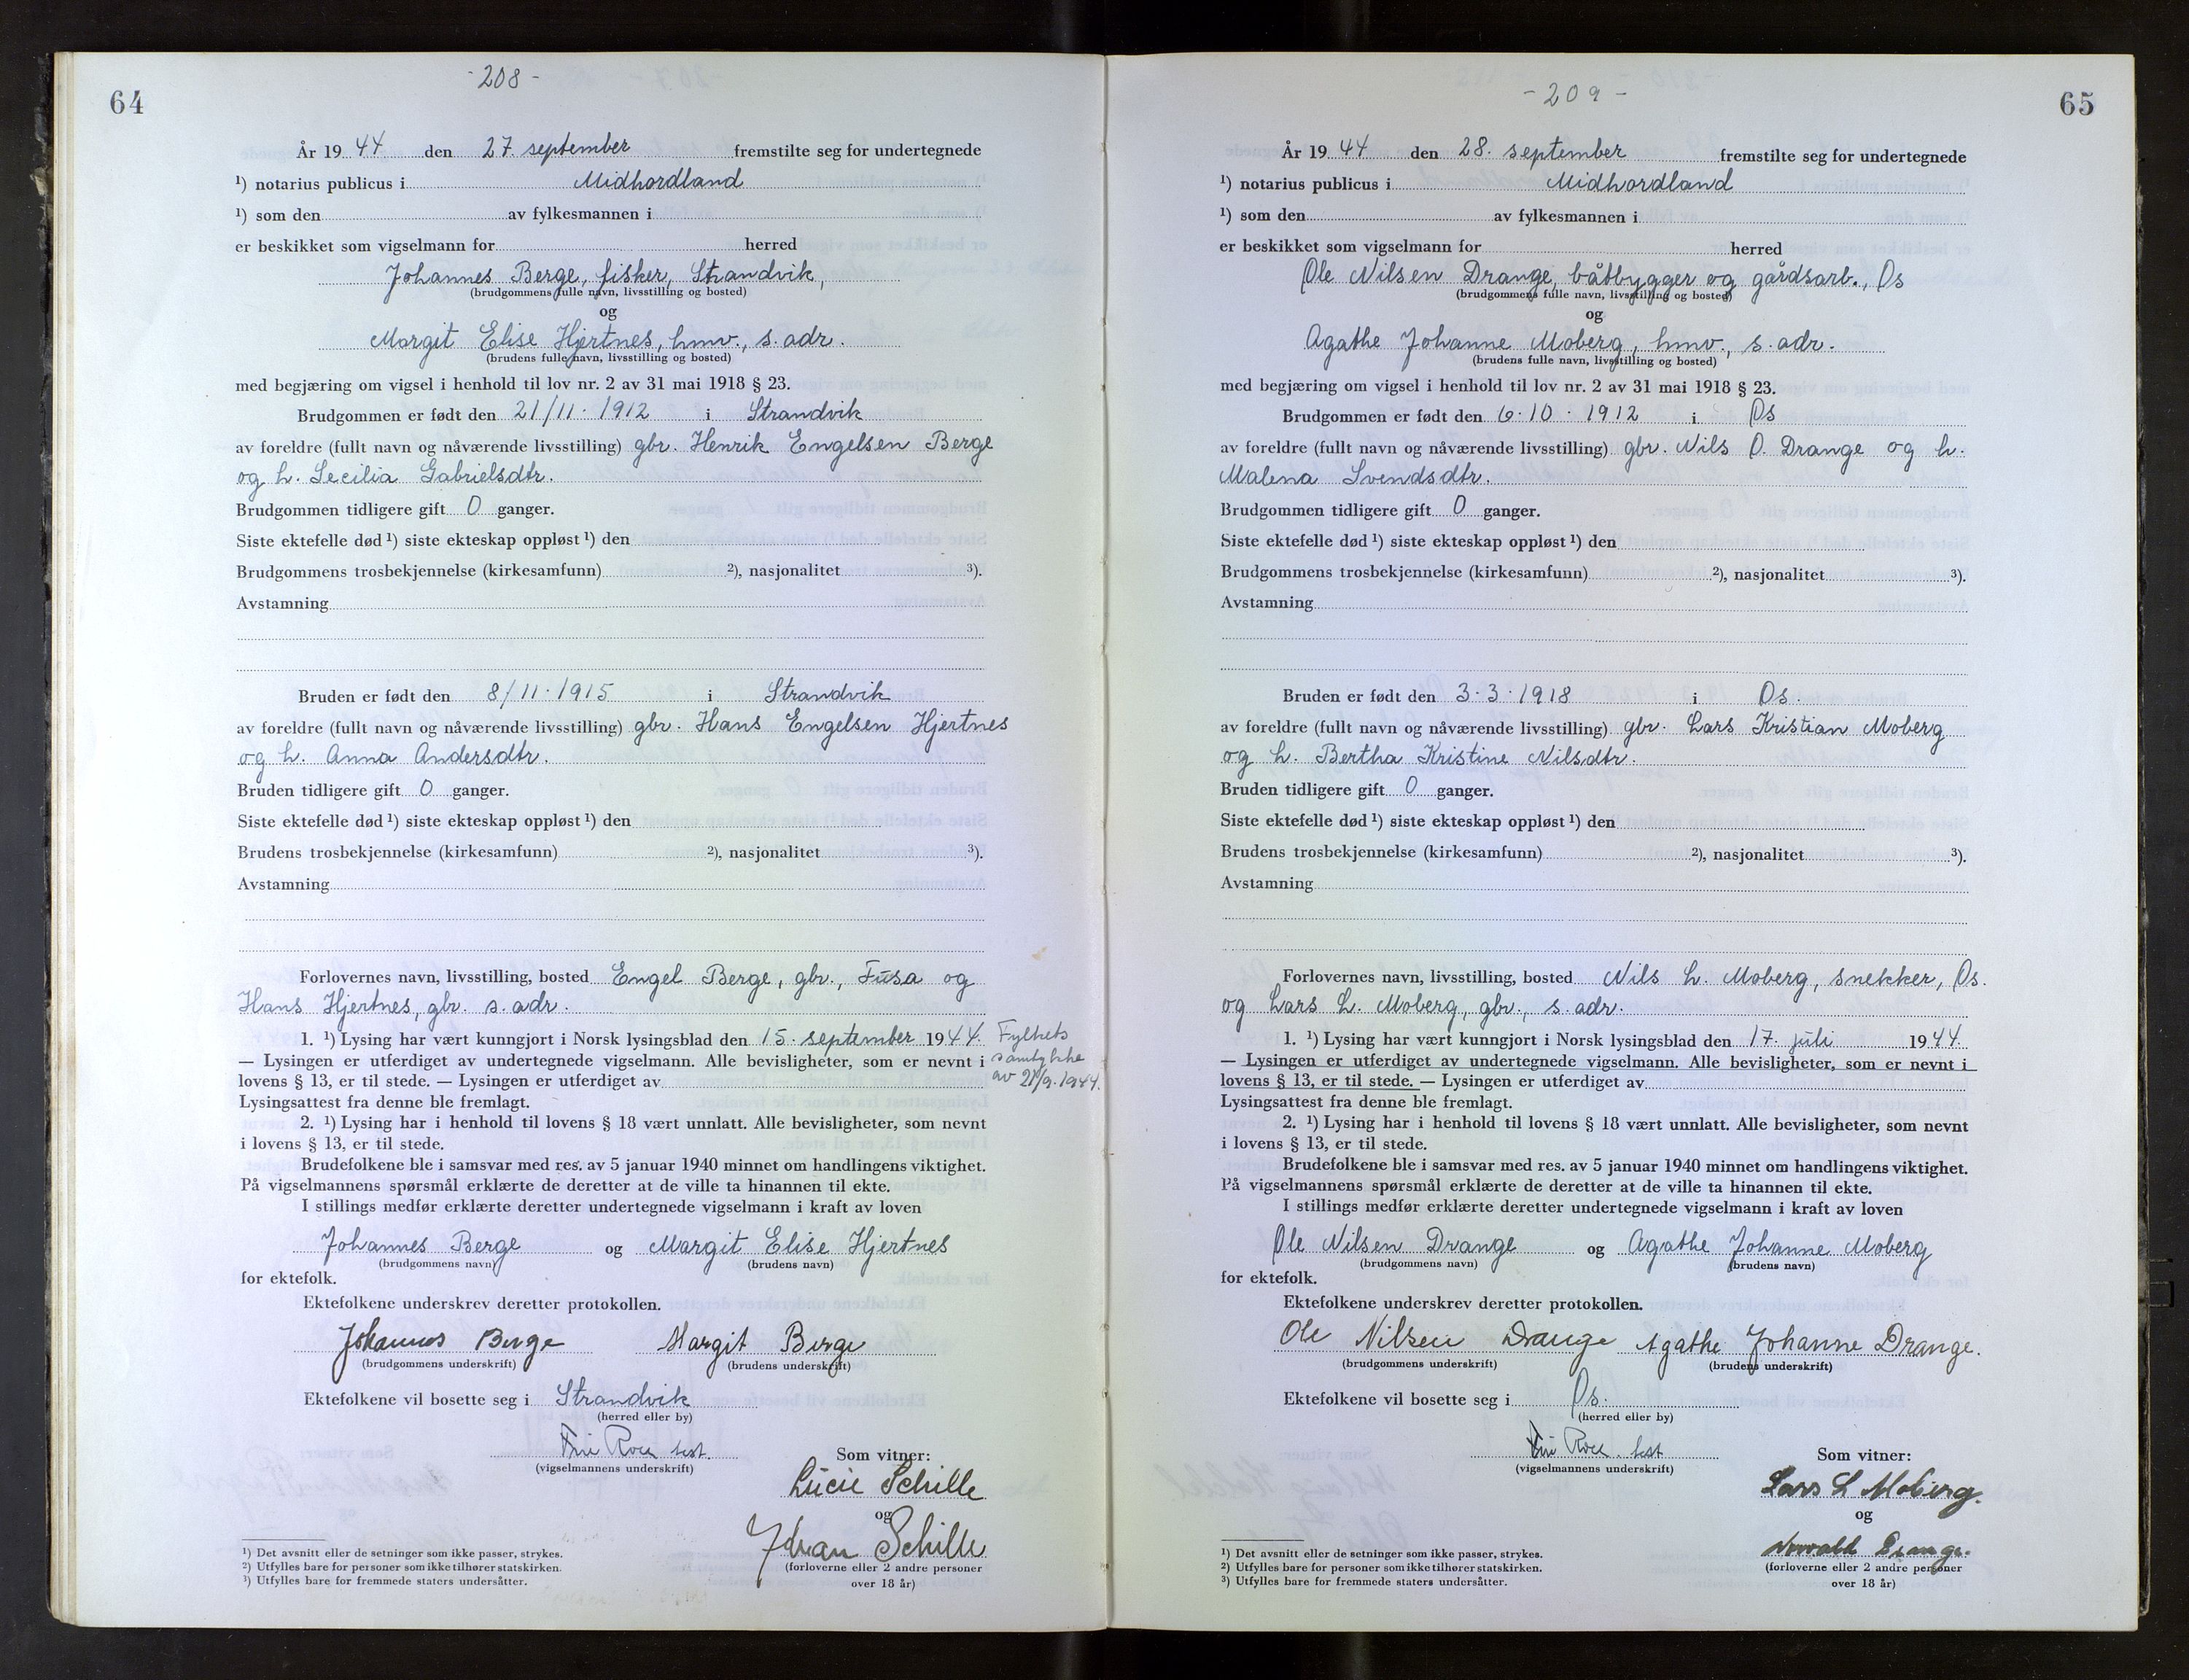 64
- 208 -
År 19 44 den 27. september fremstilte seg for undertegnede
¹) notarius publicus i Midhordland
¹) som den av fylkesmannen i
er beskikket som vigselmann for herred
Johannes Berge, fisker, Strandvik,
(brudgommens fulle navn, livsstilling og bosted)
og
Margit Elise Hjertnes, hmv., s. adr.
(brudens fulle navn, livsstilling og bosted)
med begjæring om vigsel i henhold til lov nr. 2 av 31 mai 1918 § 23.
Brudgommen er født den 21/11. 1912 i Strandvik
av foreldre (fullt navn og nåværende livsstilling) gbr. Henrik Engelsen Berge
og h. Secilia Gabrielsdtr.
Brudgommen tidligere gift 0 ganger.
Siste ektefelle død ¹) siste ekteskap oppløst ¹) den
Brudgommens trosbekjennelse (kirkesamfunn) ²), nasjonalitet ³).
Avstamning
Bruden er født den 8/11. 1915 i Strandvik
av foreldre (fullt navn og nåværende livsstilling) gbr. Hans Engelsen Hjertnes
og h. Anna Andersdtr.
Bruden tidligere gift 0 ganger.
Siste ektefelle død ¹) siste ekteskap oppløst ¹) den
Brudens trosbekjennelse (kirkesamfunn) ²), nasjonalitet ³).
Avstamning
Forlovernes navn, livsstilling, bosted Engel Berge, gbr., Fusa og
Hans Hjertnes, gbr. s. adr.
1. ¹) Lysing har vært kunngjort i Norsk lysingsblad den 15. september 1944.
— Lysingen er utferdiget av undertegnede vigselmann. Alle bevisligheter, som er nevnt i
lovens § 13, er til stede. — Lysingen er utferdiget av
Fylkets
samtykke
av 21/9. 1944.
Lysingsattest fra denne ble fremlagt.
2. ¹) Lysing har i henhold til lovens § 18 vært unnlatt. Alle bevisligheter, som nevnt
i lovens § 13, er til stede.
Brudefolkene ble i samsvar med res. av 5 januar 1940 minnet om handlingens viktighet.
På vigselmannens spørsmål erklærte de deretter at de ville ta hinannen til ekte.
I stillings medfør erklærte deretter undertegnede vigselmann i kraft av loven
Johannes Berge og Margit Elise Hjertnes
(brudgommens navn) (brudens navn)
for ektefolk.
Ektefolkene underskrev deretter protokollen.
Johannes Berge Margit Berge
(brudgommens underskrift) (brudens underskrift)
Ektefolkene vil bosette seg i Strandvik
(herred eller by)
(vigselmannens underskrift)
Som vitner:
Lucie Schille
og
Johan Schille
(forloverne eller 2 andre personer
over 18 år)
¹) Det avsnitt eller de setninger som ikke passer, strykes.
²) Utfylles bare for personer som ikke tilhører statskirken.
³) Utfylles bare for fremmede staters undersåtter.
65
- 209 -
År 19 44 den 28. september fremstilte seg for undertegnede
¹) notarius publicus i Midhordland
¹) som den av fylkesmannen i
er beskikket som vigselmann for herred
Ole Nilsen Drange, båtbygger og gårdsarb., Os
(brudgommens fulle navn, livsstilling og bosted)
og
Agathe Johanne Moberg, hmv., s. adr.
(brudens fulle navn, livsstilling og bosted)
med begjæring om vigsel i henhold til lov nr. 2 av 31 mai 1918 § 23.
Brudgommen er født den 6. 10. 1912 i Os
av foreldre (fullt navn og nåværende livsstilling) gbr. Nils O. Drange og h.
Malena Svendsdtr.
Brudgommen tidligere gift 0 ganger.
Siste ektefelle død ¹) siste ekteskap oppløst ¹) den
Brudgommens trosbekjennelse (kirkesamfunn) ²), nasjonalitet ³).
Avstamning
Bruden er født den 3. 3. 1918 i Os.
av foreldre (fullt navn og nåværende livsstilling) gbr. Lars Kristian Moberg
og h. Bertha Kristine Nilsdtr.
Bruden tidligere gift 0 ganger.
Siste ektefelle død ¹) siste ekteskap oppløst ¹) den
Brudens trosbekjennelse (kirkesamfunn) ²), nasjonalitet ³).
Avstamning
Forlovernes navn, livsstilling, bosted Nils L. Moberg, snekker, Os.
og Lars L. Moberg, gbr., s. adr.
1. ¹) Lysing har vært kunngjort i Norsk lysingsblad den 17. juli 1944.
— Lysingen er utferdiget av undertegnede vigselmann. Alle bevisligheter, som er nevnt i
lovens § 13, er til stede. — Lysingen er utferdiget av
Lysingsattest fra denne ble fremlagt.
2. ¹) Lysing har i henhold til lovens § 18 vært unnlatt. Alle bevisligheter, som nevnt
i lovens § 13, er til stede.
Brudefolkene ble i samsvar med res. av 5 januar 1940 minnet om handlingens viktighet.
På vigselmannens spørsmål erklærte de deretter at de ville ta hinannen til ekte.
I stillings medfør erklærte deretter undertegnede vigselmann i kraft av loven
Ole Nilsen Drange og Agathe Johanne Moberg
(brudgommens navn) (brudens navn)
for ektefolk.
Ektefolkene underskrev deretter protokollen.
Ole Nilsen Drange Agathe Johanne Drange.
(brudgommens underskrift) (brudens underskrift)
Ektefolkene vil bosette seg i Os.
(herred eller by)
(vigselmannens underskrift)
Som vitner:
Lars L Moberg.
og
Drange.
(forloverne eller 2 andre personer
over 18 år)
¹) Det avsnitt eller de setninger som ikke passer, strykes.
²) Utfylles bare for personer som ikke tilhører statskirken.
³) Utfylles bare for fremmede staters undersåtter.